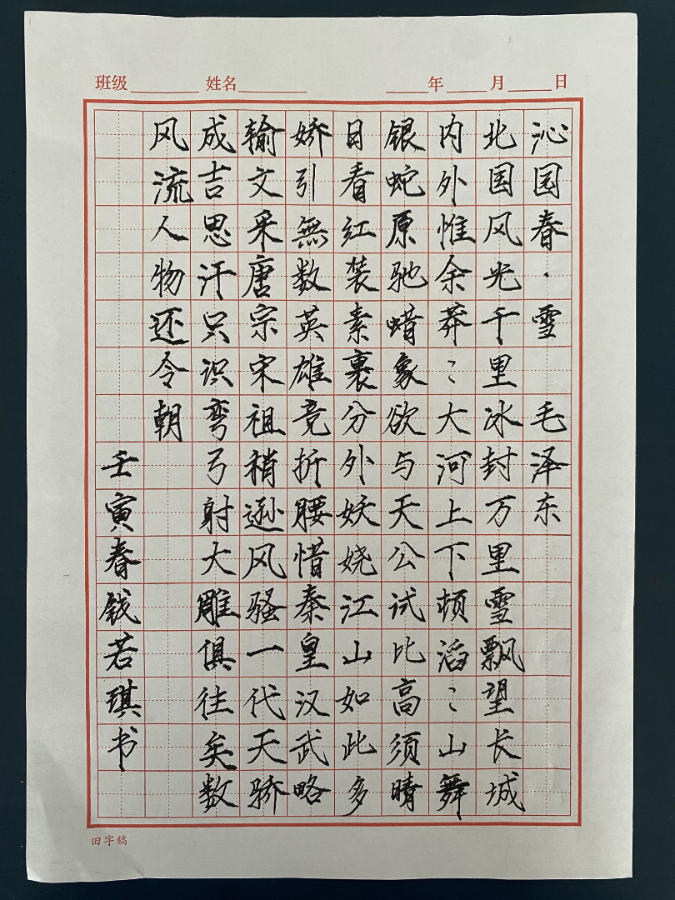 班级______ 姓名______ ____年____月____日
沁园春·雪 毛泽东
北国风光千里冰封万里雪飘望长城
内外惟余莽〻大河上下顿滔〻山舞
银蛇原驰蜡象欲与天公试比高须晴
日看红装素裹分外妖娆江山如此多
娇引無数英雄竞折腰惜秦皇汉武略
输文采唐宗宋祖稍逊风骚一代天骄
成吉思汗只识弯弓射大雕俱往矣数
风流人物还今朝
壬寅春钱若琪书
田字稿